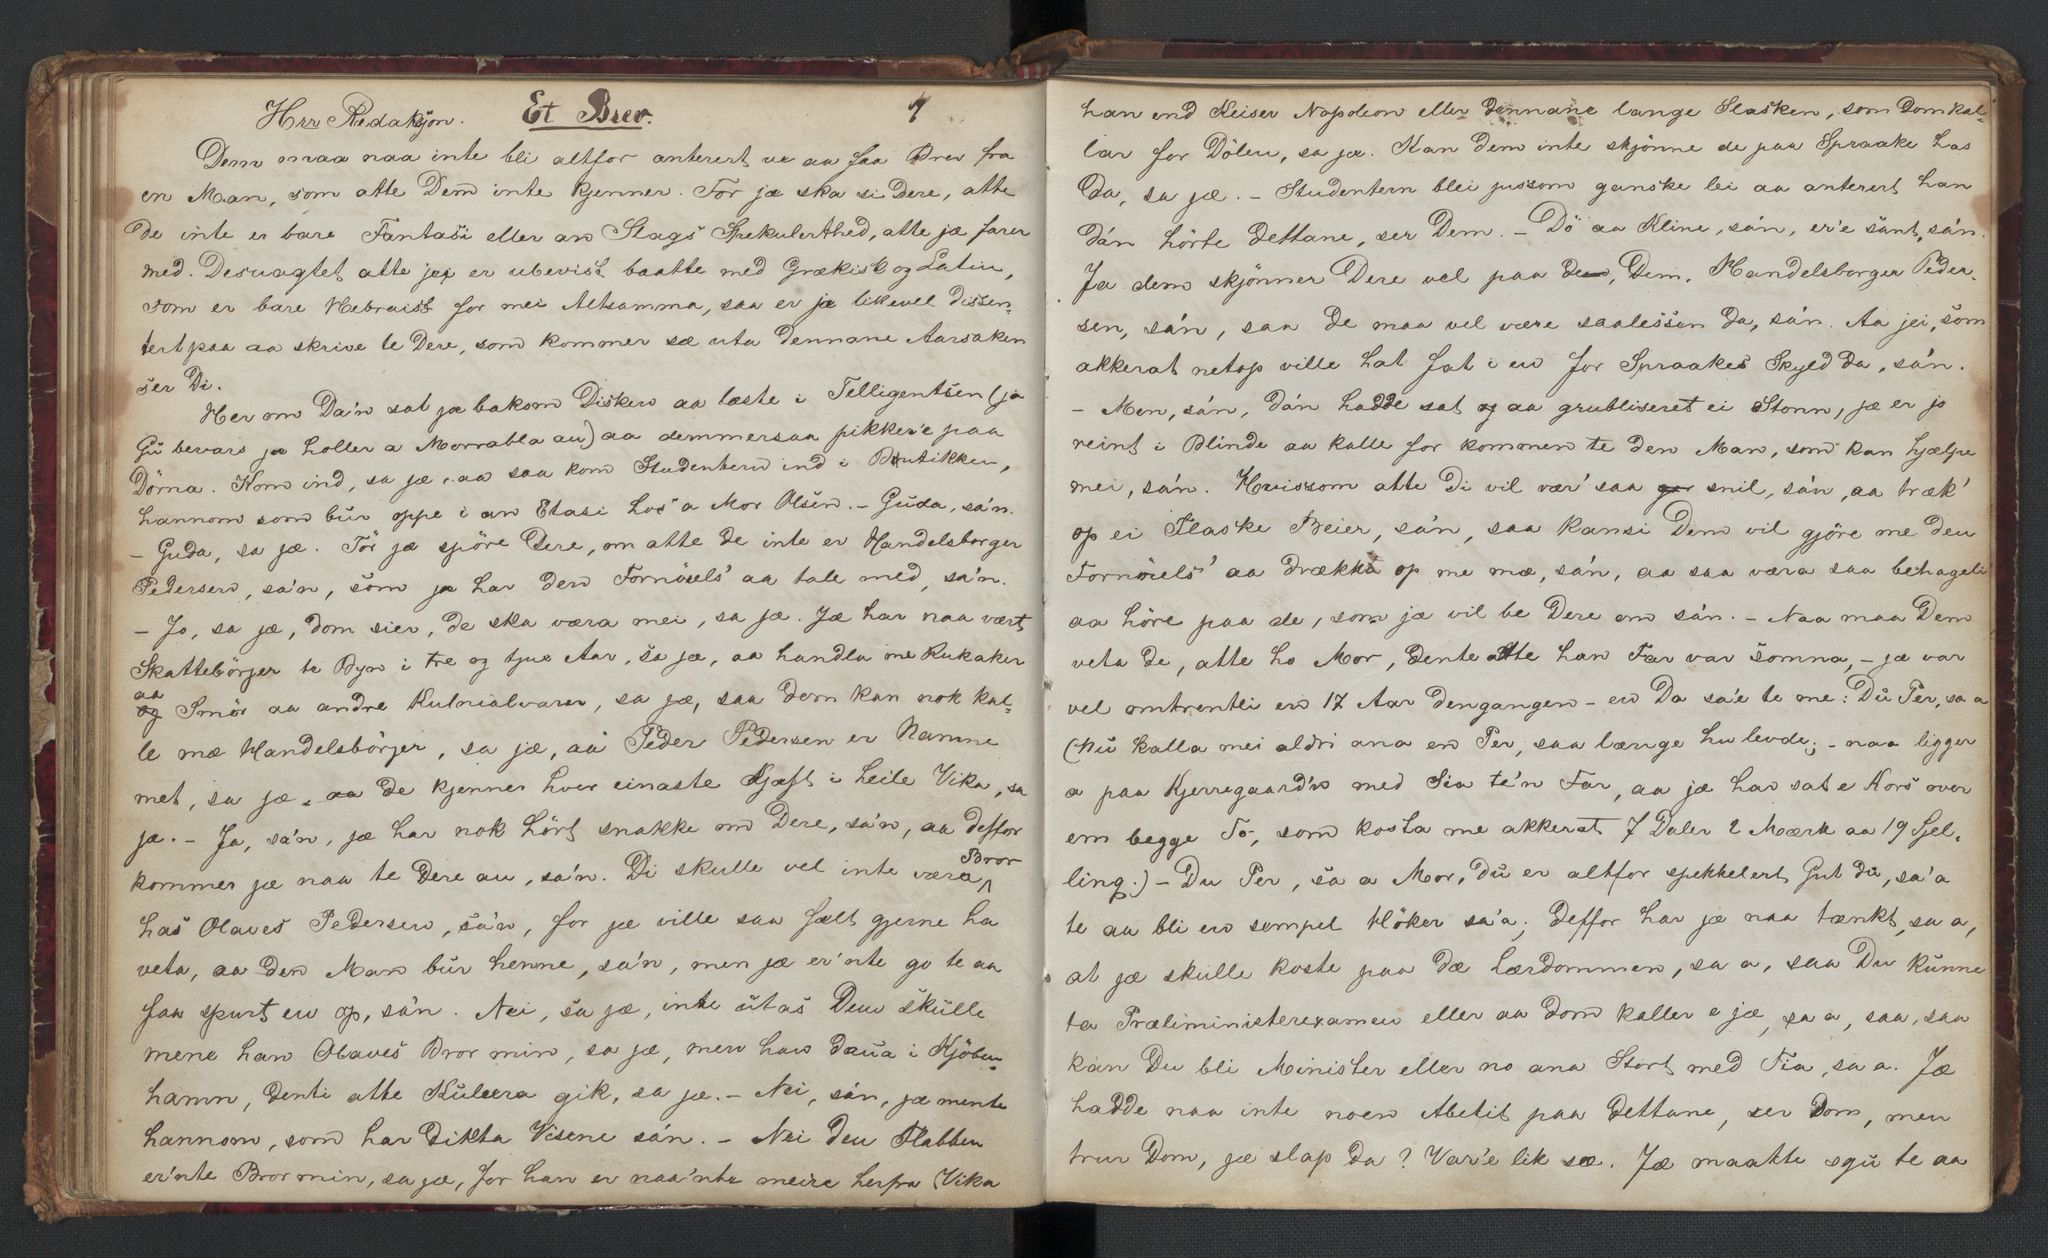 Et Brev. 9
Hrr Redaksjon.
Dem maa naa inte bli altfor anterert ve aa faa Brev fra
en Man, som atte Dem inte kjenner. For jæ ska si Dere, atte
de inte er bare Fantasi eller an Slags Spekulerthed, atte jæ farer
med. Desuagtet atte jei er ubevist baatte med Grækisk og Latin,
som er bare Hebraisk for mei Altsamma, saa er jæ likevel dissen-
tert paa aa skrive te Dere, som kommer sæ uta dennane Aarsaken
ser Di.
Her om Da'n sat jæ bakom Disken aa læste i Telligentsen (ja
Gu bevars jæ holler a Morrabla au) aa demmersaa pikker'e paa
Dörna. Kom ind, sa jæ, aa saa kom Studentern ind i Butikken,
hannom som bur oppe i an Etasi hos a Mor Olsen. – Guda, sa'n.
– Guda, sa jæ. Tör jæ spöre Dere, om atte de inte er Handelsborger
Pedersen, sa'n, som jæ har den Fornöiels' aa tale med, sa'n.
– Jo, sa jæ, dom sier, de ska væra mei, sa jæ. Jæ har naa vært
Skattebörjer te Byn i tre og tjue Aar, sa jæ, aa handla me Kukaker
aa Smör aa andre Kulnialvarer, sa jæ, saa dom kan nok kal-
le mæ Handelsbörjer, sa jæ, aa Peder Pedersen er Namne
met, sa jæ, aa de kjenner hver einaste Kjæft i heile Vika, sa
jæ. – Ja, sa'n, jæ har nok hört snakke om Dere, sa'n, aa deffor
kommer jæ naa te Dere au, sa'n. Di skulle vel inte væra Bror
has Olaves Pedersen, sa'n, for jæ ville saa fælt gjerne ha
veta, aa den Man bur henne, sa'n, men jæ er'nte go te aa
faa spurt en op, sa'n. Nei, sa jæ, inte utas Dem skulle
mene han Olaves Bror min, sa jæ, men han daua i Kjöben-
hamn, denti atte Kuleera gik, sa jæ. – Nei, sa'n, jæ mente
hannom, som har dikta Visene sa'n. – Nei den Flabben
er'nte Bror min, sa jæ, for han er naa'nte meire herfra Vika
han end Keiser Napoleon eller dennane lange Slasken, som Dom kal-
lar for Dölen, sa jæ. Kan dem inte skjönne de paa Spraake has
Da, sa jæ. – Studentern blei jussom ganske lei aa anterert han
da'n hörte dettane, ser Dem. – Dö aa Kline, sa'n, er'e sant, sa'n.
Ja dem skjönner Dere vel paa de, Dem, Handelsborger Peder-
sen, sa'n, saa de maa vel være saalessen da, sa'n. Aa jei, som
akkerat netop ville hat fat i en for Spraakes Skyld da, sa'n.
– Men, sa'n, da'n hadde sat aa grubliseret ei Stonn, jæ er jo
reint i Blinde aa kalle for kommen te den Man, som kan hjælpe
mei, sa'n. Hvissom atte Di vil vær' saa snil, sa'n, aa træk'
op ei Flaske Beier, sa'n, saa kansi Dem vil gjöre me den
Fornöiels' aa drække op me mæ, sa'n, aa saa væra saa behageli
aa höre paa de, som jæ vil be Dere om sa'n. – Naa maa Dem
veta de, atte ho Mor, dente atte han Far var somna, – jæ var
vel omtrentli en 17 Aar dengangen – en Da sa'e te me: Du Per, sa a
(hu kalla mei aldri ana en Per, saa længe hu levde; – naa ligger
a paa Kjerregaard'n med Sia te'n Far, aa jæ har sat e Kors over
em begge To, som kosta me akkerat 7 Daler 2 Mærk aa 19 Sjel-
ling.) – Du Per, sa a Mor, du er altfor spekkelert Gut du, sa'a
te aa bli en sempel Höker sa'a; deffor har jæ naa tænkt, sa a,
at jæ skulle koste paa dæ Lærdommen, sa a, saa Du kunne
ta Præliministerexamen eller aa dom kaller e jæ, sa a, saa, saa
kan Du bli Minister eller no ana Stort med Tia, sa a. Jæ
hadde naa inte noen Abetit paa dettane, ser Dom, men
trur Dom, jæ slap da? Var'e lik sæ. Jæ maatte sgu te aa